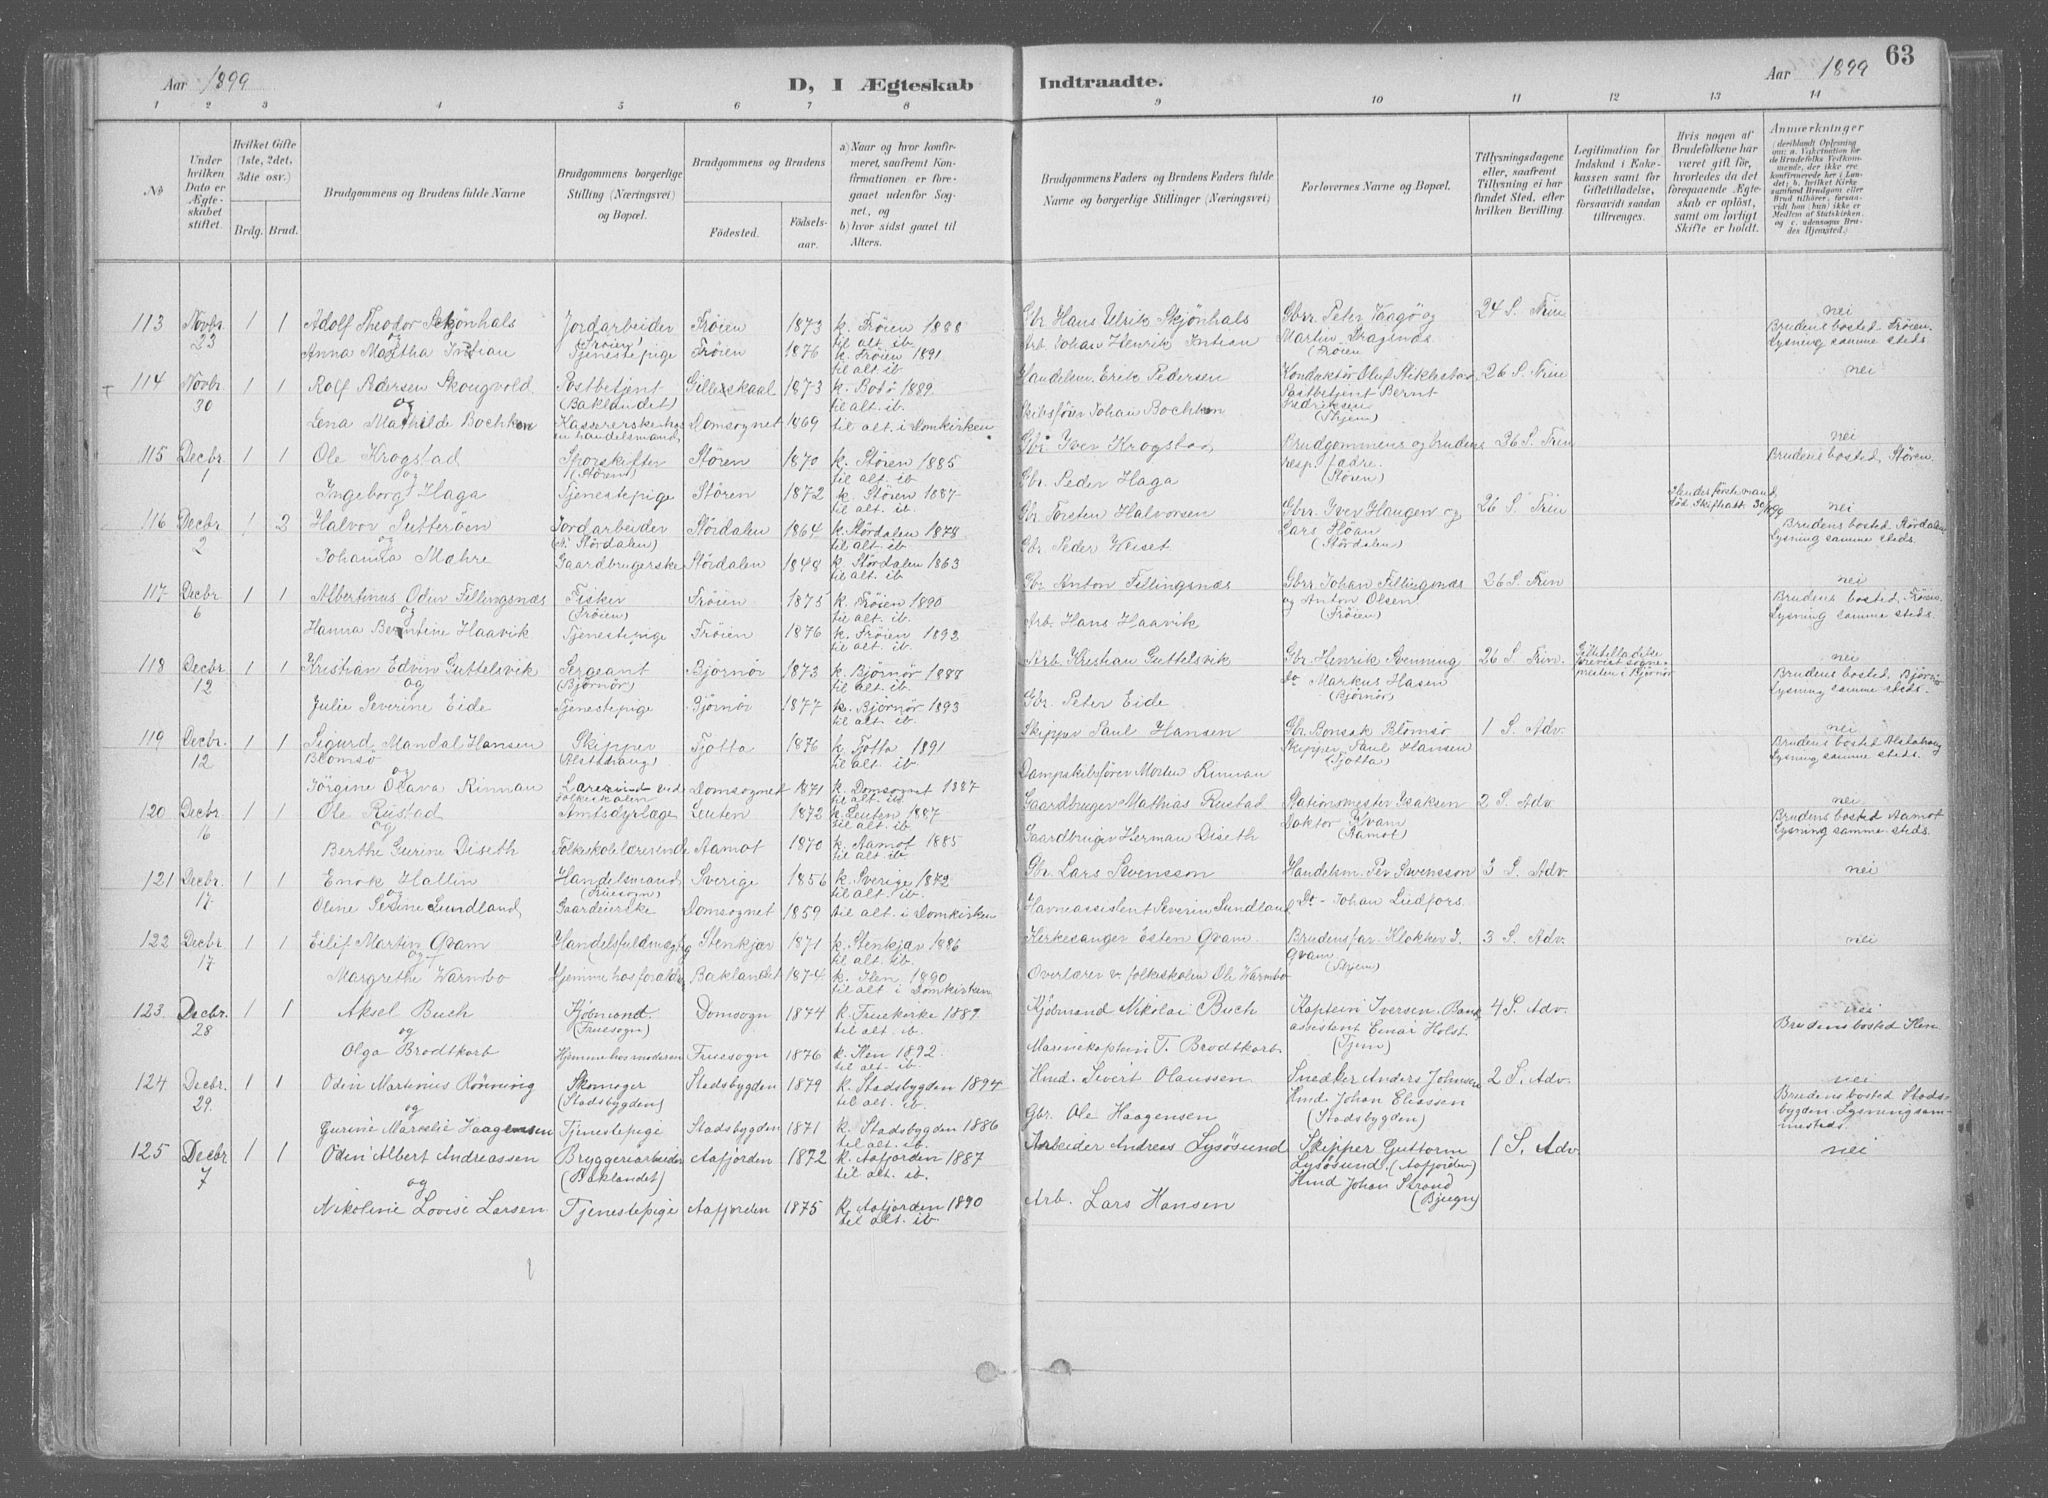 63
Aar 1899
D, I Ægteskab
Indtraadte.
Aar 1899
1 2 3 4 5 6 7 8 9 10 11 12 13 14
No
Under hvilken Dato er Ægteskabet stiftet.
Hvilket Gifte (1ste, 2det, 3die osv.)
Brdg. Brud.
Brudgommens og Brudens fulde Navne
Brudgommens borgerlige Stilling (Næringsvei) og Bopæl.
Brudgommens og Brudens
Fødested.
Fødselsaar.
a) Naar og hvor konfirmeret, saafremt Konfirmationen er foregaaet udenfor Sognet, og
b) hvor sidst gaaet til Alters.
Brudgommens Faders og Brudens Faders fulde Navne og borgerlige Stillinger (Næringsvei)
Forlovernes Navne og Bopæl.
Tillysningsdagene eller, saafremt Tillysning ei har fundet Sted, efter hvilken Bevilling.
Legitimation for Indskud i Enkekassen samt for Giftetilladelse, forsaavidt saadan tiltrænges.
Hvis nogen af Brudefolkene har været gift før, hvorledes da det foregaaende Ægteskab er opløst, samt om lovligt Skifte er holdt.
Anmerkninger (deriblandt Oplysning om: a. Vakcination for de Brudefolks Vedkommende, der ikke ere konfirmerede her i Landet; b. hvilket Kirkesamfund Brudgom eller Brud tilhører, forsaavidt han (hun) ikke er Medlem af Statskirken, og c. udensogns Brudes Hjemsted.)
113 Novbr. 23 1 1 Adolf Theodor Skjønhals Jordarbeider (Frøien) Frøien 1873 k. Frøien 1888 til alt. ib. Gbr. Hans Ulrik Skjønhals Gbrr Peter Vaagø og 24 S. Trin nei
og
Anna Martha Intian Tjenestepige Frøien 1876 k. Frøien 1891 til alt. ib. Arb. Johan Henrik Intian Martin Dragsnæs (Frøien Brudens bosted Frøien. Lysning samme steds.
114 Novbr. 30 1 1 Rolf Adersen Skougvold Postbetjent (Baklandet) Gilleskaal 1873 k. Bodø 1889 til alt. ib. Handelsm. Erik Pedersen Konduktør Oluf Stiklestad 26 S. Trin nei
og
Lena Mathilde Bochken Kassererske hos en handelsmand Domsognet 1869 til alt. i Domkirken Skibsfører Johan Bochken Postbetjent Bernt Fredriksen (Thjem)
115 Decbr. 1 1 1 Ole Krogstad Sporskifter (Støren) Støren 1870 k. Støren 1885 til alt. ib. Gbr. Iver Krogstad Brudgommens og brudens resp. fædre. (Støren) 26 S. Trin nei
og
Ingeborg Haga Tjenestepige Støren 1872 k. Støren 1887 til alt. ib. Gbr. Peder Haga Brudens bosted Støren.
116 Decbr. 2 1 2 Halvor Sutterøen Jordarbeider (N. Størdalen) Størdalen 1864 k. Størdalen 1878 til alt. ib. Gbr. Torsten Halvorsen Gbrr. Iver Haugen og 26 S. Trin nei
og
Johanna Mahre Gaardbrugerske Størdalen 1848 k. Størdalen 1863 til alt. ib. Gbr. Peder Weiset Lars Høan (Størdalen) Brudens bosted Størdalen Lysning samme steds.
117 Decbr. 6 1 1 Albertinus Odin Fillingsnæs Fisker (Frøien) Frøien 1875 k. Frøien 1890 til alt. ib. Gbr. Anton Fillingsnæs Gbrr Johan Fillingsnæs 26 S. Trin nei
og
Hanna Berntine Haavik Tjenestepige Frøien 1876 k. Frøien 1892 til alt. ib. Arb. Hans Haavik og Anton Olsen (Frøien) Brudens bosted Frøien. Lysning samme steds.
118 Decbr. 12 1 1 Kristian Edvin Guttelsvik Sergeant (Bjørnør) Bjørnør 1873 k. Bjørnør 1888 til alt. ib. Arb. Kristian Guttelsvik Gbr. Henrik Svenning 26 S. Trin. Giftetilladelse nei
og
Julie Severine Eide Tjenestepige Bjørnør 1877 k. Bjørnør 1893 til alt. ib. Gbr. Peter Eide Do Markus Hasen (Bjørnør) Brudens bosted Bjørnør Lysning samme steds.
119 Decbr. 12 1 1 Sigurd Mandal Hansen Blomsø Skipper (Alstahaug) Tjøtta 1876 k. Tjøtta 1891 til alt. ib. Skipper Paul Hansen Gbr. Bonsak Blomsø 1 S. Adv. nei
og
Jørgine Olava Rinnan Lærerinde ved folkeskolen Domsognet 1871 k. Domsognet 1887 til alt. ib. Dampskibsfører Morten Rinnan Skipper Paul Hansen (Tjøtta) Brudens bosted Alstahaug Lysning samme steds.
120 Decbr. 16 1 1 Ole Rustad Amtsdyrlæge Leuten 1872 k. Leuten 1887 til alt. ib. Gaardbruger Mathias Rustad Stationsmester Isaksen 2 S. Adv nei
og
Berthe Gurine Diseth Folkeskolelærerinde Aamot 1870 k. Aamot 1885 til alt. ib. Gaardbruger Herman Diseth Doktor Kvam (Aamot) Brudens bosted Aamot Lysning samme steds.
121 Decbr. 17 1 1 Enok Hallin Handelsmand (Fruesogn) Sverige 1856 k. Sverige 1872 til alt. ib. Gbr. Lars Swensson Handelsm. Per Swensson 3 S. Adv. nei
og
Oline Serine Sundland Gaardeierske Domsognet 1859 til alt. i Domkirken Havneassistent Severin Sundland Do - Johan Lidfors.
122 Decbr. 17 1 1 Eilif Martin Qvam Handelsfuldmægtig Stenkjær 1871 k. Stenkjær 1886 til alt. ib. Kirkesanger Østen Qvam Brudensfar. Klokker J. Qvam (Thjem) 3 S. Adv. nei
og
Margrethe Warmbo Hjemme hos forældre Baklandet 1874 k. Ilen 1890 til alt. i Domkirken Overlærer v. folkeskolen Ole Warmbo
123 Decbr. 28 1 1 Aksel Buch Kjøbmand (Fruesogn) Domsogn 1874 k. Fruekirke 1889 til alt. ib. Kjøbmand Nikolai Buch Kaptein Iversen. Bank 4 S. Adv. nei
og
Olga Brodtkorb Hjemme hos moderen Fruesogn 1876 k. Ilen 1892. til alt. ib. Marinekaptein T. Brodtkorb assistent Einar Holst (Tjem) Brudens bosted Ilen
124 Decbr. 29. 1 1 Odin Martinus Rønning Skomager (Stadsbygden) Stadsbygden 1879 k. Stadsbygden 1894 til alt. ib. Hmd. Sivert Olaussen Snedker Anders Johnsen 2 S. Adv. nei
og
Gurine Marselie Haagensen Tjenestepige Stadsbygden 1871 k. Stadsbygden 1886 til alt. ib. Gbr. Ole Haagensen Hmd Johan Eliassen (Stadsbygden) Brudens bosted Stadsbygden. Lysning sammesteds.
125 Decbr 7 1 1 Odin Albert Andreassen Bryggeriarbeider (Baklandet) Aafjorden 1872 k. Aafjorden 1887 til alt. ib. Arbeider Andreas Lysøsund Skipper Guttorm Lysøsund. (Aafjorden) 1 S. Adv. nei
og
Nikoline Lovise Larsen Tjenestepige Aafjorden 1875 k. Aafjorden 1890 til alt. ib Arb. Lars Hansen Hmd Johan Strand (Bjugn)